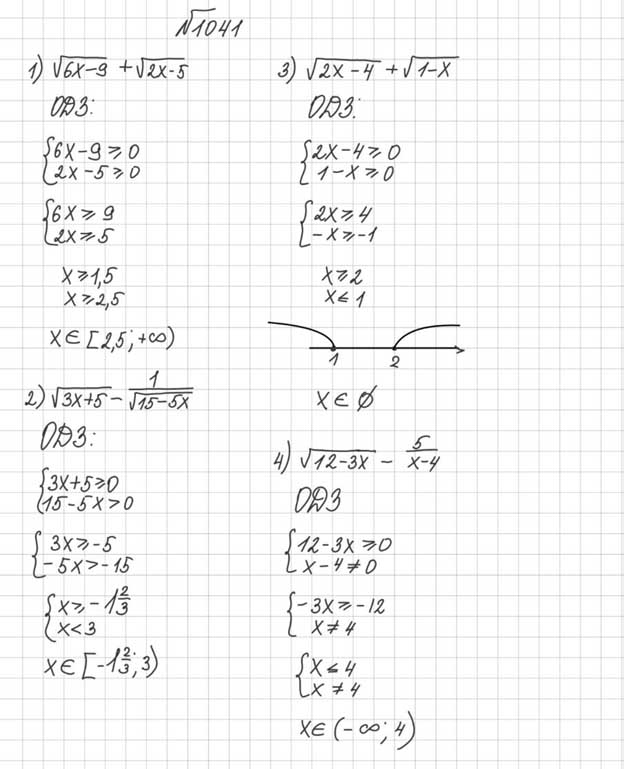 №1041
1) √(6x-9) + √(2x-5)
ОДЗ:
{6x-9⩾0
{2x-5⩾0
{6x⩾9
{2x⩾5
x⩾1,5
x⩾2,5
x∈[2,5;+∞)
2) √(3x+5) - 1/√(15-5x)
ОДЗ:
{3x+5⩾0
{15-5x>0
{3x⩾-5
{-5x>-15
{x⩾-1 2/3
{x<3
x∈[-1 2/3; 3)
3) √(2x-4) + √(1-x)
ОДЗ:
{2x-4⩾0
{1-x⩾0
{2x⩾4
{-x⩾-1
x⩾2
x⩽1
1 2
x∈∅
4) √(12-3x) - 5/(x-4)
ОДЗ
{12-3x⩾0
{x-4≠0
{-3x⩾-12
{x≠4
{x⩽4
{x≠4
x∈(-∞; 4)